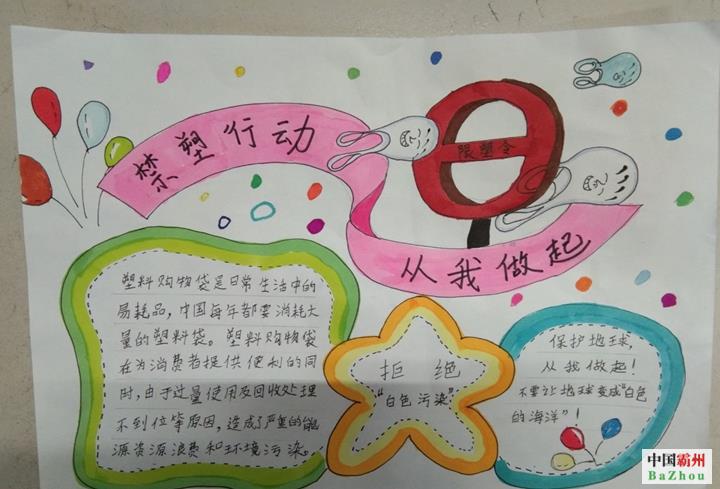 禁塑行动
限塑令
从我做起
塑料购物袋是日常生活中的
易耗品,中国每年都要消耗大
量的塑料袋。塑料购物袋
在为消费者提供便利的同
时,由于过量使用及回收处理
不到位等原因,造成了严重的能
源资源浪费和环境污染。
拒绝
“白色污染”
保护地球,
从我做起!
不要让地球变成“白色
的海洋”!
中国霸州
BaZhou